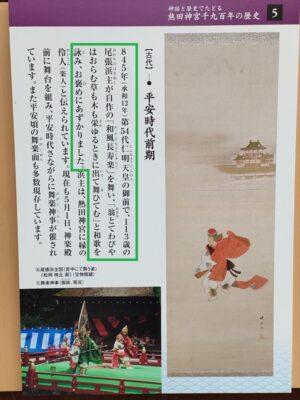 神話と歴史でたどる
熱田神宮千九百年の歴史
5
【古代】
● 平安時代前期
845年(承和12年)第54代仁明天皇の御前で、113歳の
尾張浜主が自作の「和風長寿楽」を舞い、「翁とてわびや
はおらむ草も木も栄ゆるときに出て舞ひてむ」と和歌を
詠み、お褒めにあずかりました。浜主は、熱田神宮に縁の
伶人(楽人)と伝えられています。現在も5月1日、神楽殿
前に舞台を組み、平安時代さながらに舞楽神事が催され
ています。また平安頃の舞楽面も多数現存しています。
①尾張浜主図(宮中にて舞う姿)
(宝物館蔵)
②舞楽神事